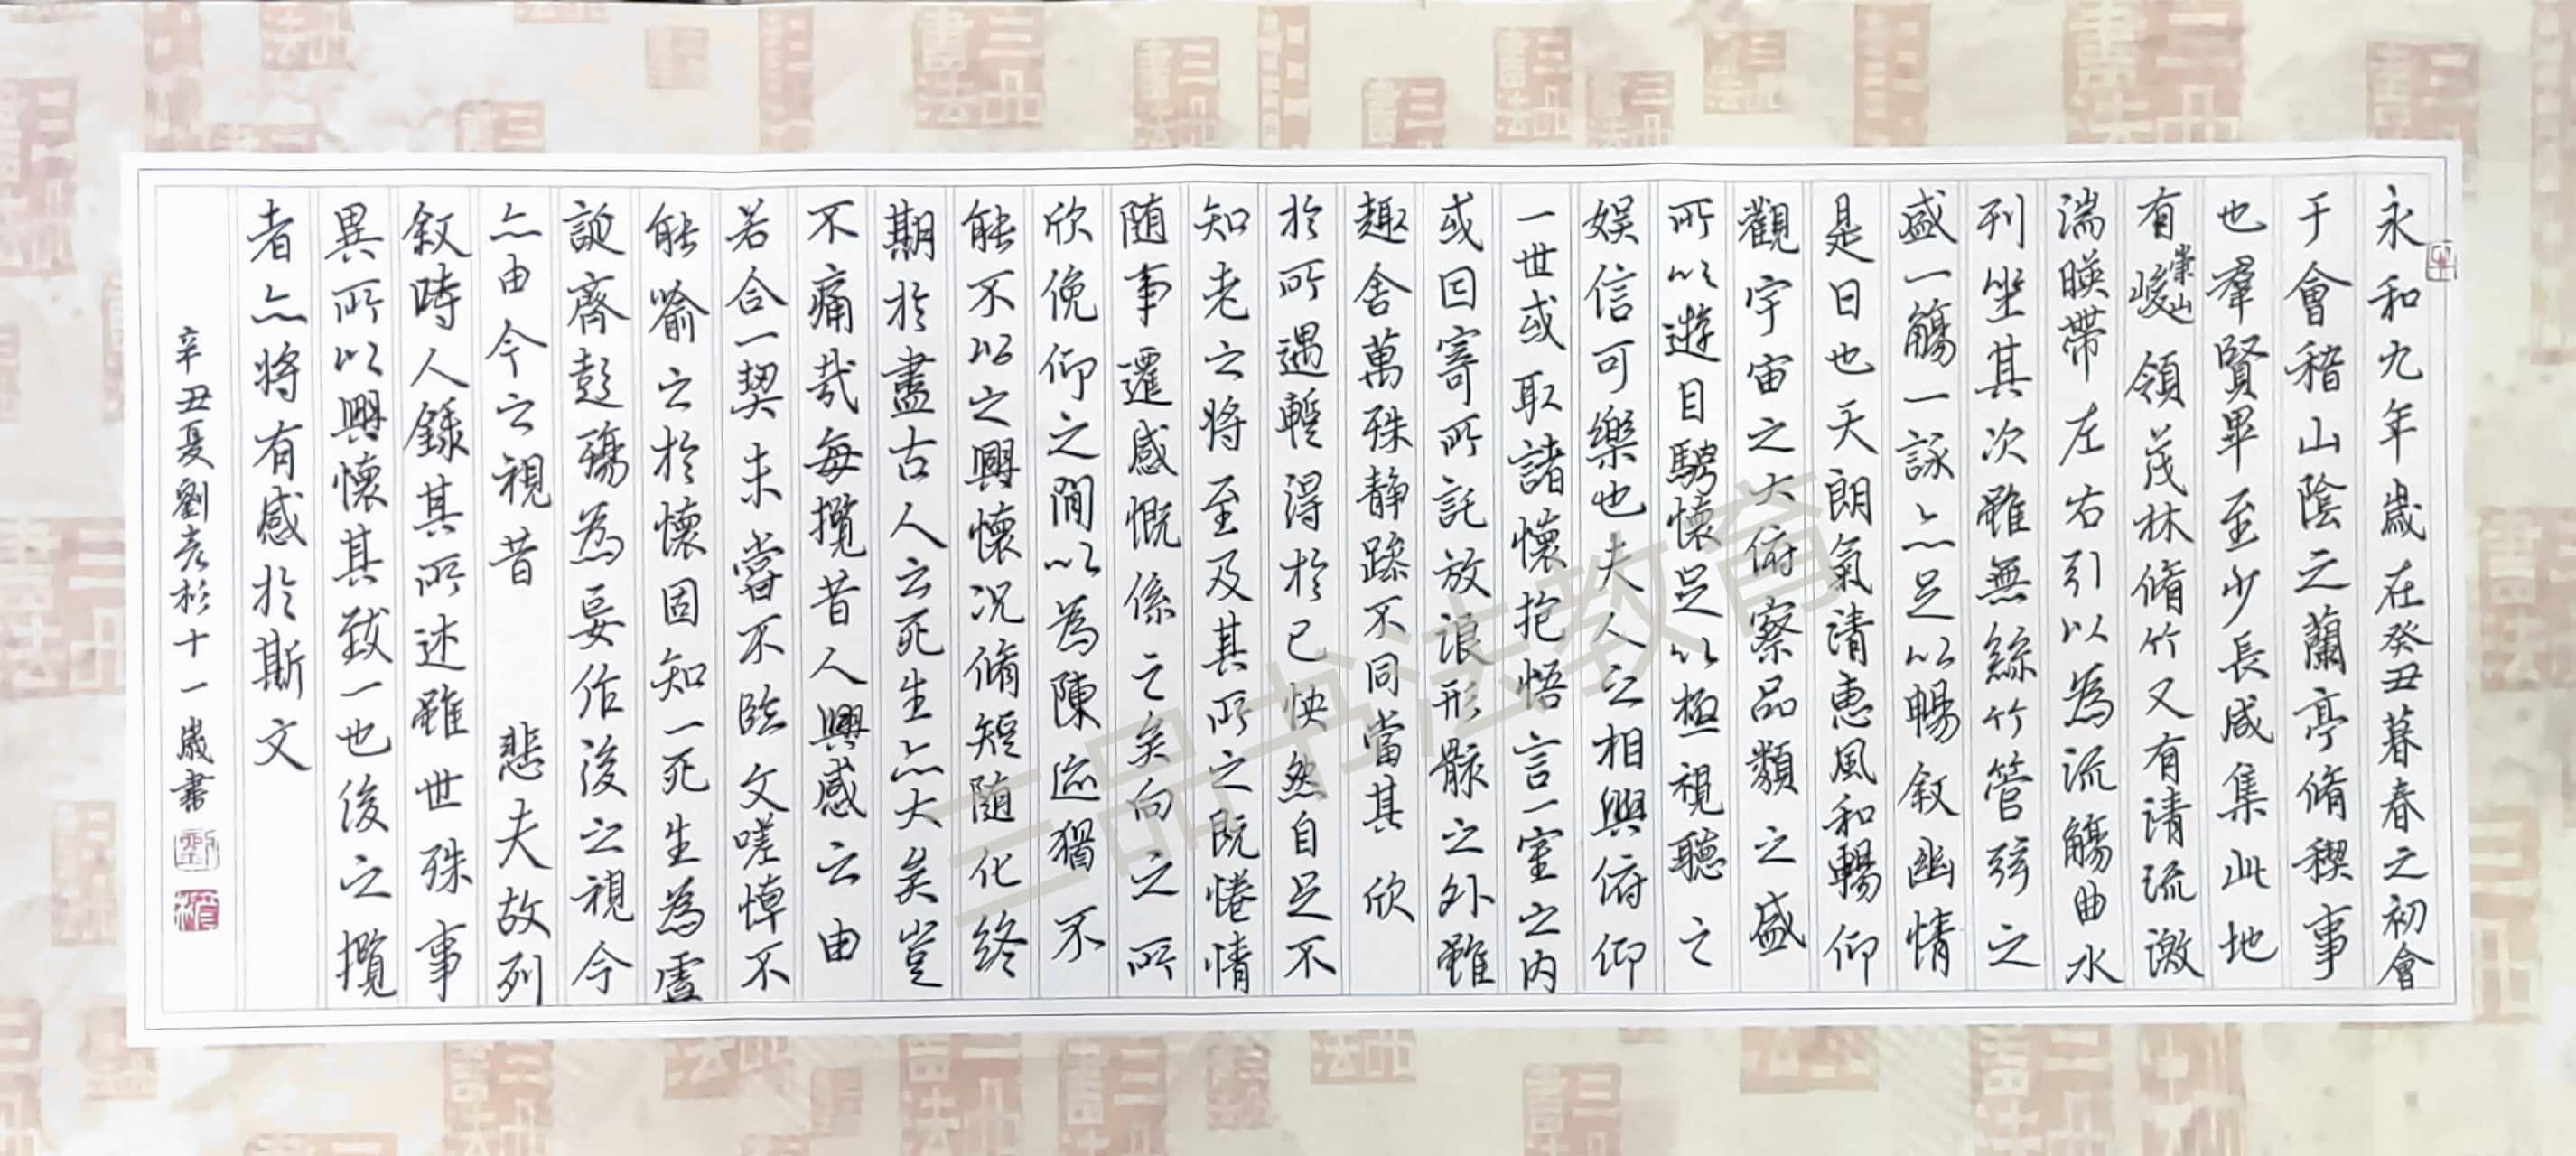 永和九年歲在癸丑暮春之初會
于會稽山陰之蘭亭脩稧事
也羣賢畢至少長咸集此地
有崇山峻領茂林脩竹又有清流激
湍暎帶左右引以為流觴曲水
列坐其次雖無絲竹管弦之
盛一觴一詠亦足以暢叙幽情
是日也天朗氣清惠風和暢仰
觀宇宙之大俯察品類之盛
所以遊目騁懷足以極視聽之
娛信可樂也夫人之相與俯仰
一世或取諸懷抱悟言一室之內
或因寄所託放浪形骸之外雖
趣舍萬殊静躁不同當其欣
於所遇暫得於己怏然自足不
知老之將至及其所之既惓情
隨事遷感慨係之矣向之所
欣俛仰之閒以為陳迹猶不
能不以之興懷況脩短隨化終
期於盡古人云死生亦大矣豈
不痛哉每攬昔人興感之由
若合一契未嘗不臨文嗟悼不
能喻之於懷固知一死生為虛
誕齊彭殤為妄作後之視今
亦由今之視昔悲夫故列
叙時人錄其所述雖世殊事
異所以興懷其致一也後之攬
者亦將有感於斯文
辛丑夏劉彥杉十一歲書
三品书法教育